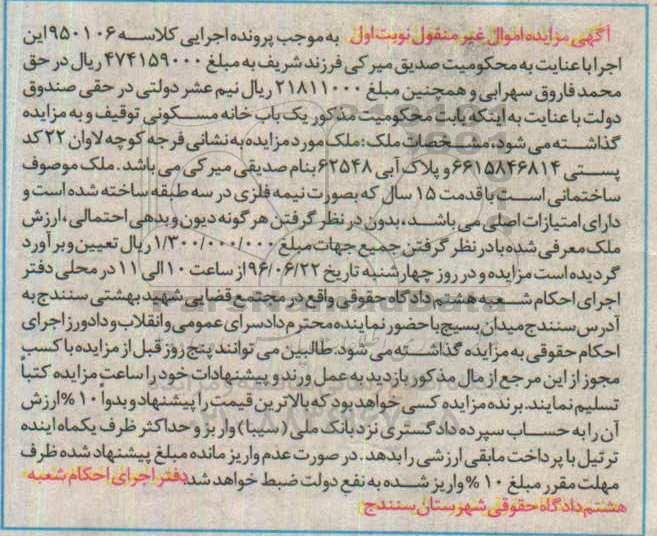 آگهی مزایده اموال غیر منقول نوبت اول به موجب پرونده اجرایی کلاسه ۹۵۰۱۰۶ این
اجرا با عنایت به محکومیت صدیق میرکی فرزند شریف به مبلغ ۴۷۴۱۵۹۰۰۰ ریال در حق
محمد فاروق سهرابی و همچنین مبلغ ۲۱۸۱۱۰۰۰ ریال نیم عشر دولتی در حقی صندوق
دولت با عنایت به اینکه بابت محکومیت مذکور یک باب خانه مسکونی توقیف و به مزایده
گذاشته می شود، مشخصات ملک: ملک مورد مزایده به نشانی فرجه کوچه لاوان ۲۲ کد
پستی ۶۶۱۵۸۴۶۸۱۴ و پلاک آبی ۶۲۵۴۸ بنام صدیقی میرکی می باشد. ملک موصوف
ساختمانی است با قدمت ۱۵ سال که بصورت نیمه فلزی در سه طبقه ساخته شده است و
دارای امتیازات اصلی می باشد، بدون در نظر گرفتن هر گونه دیون و بدهی احتمالی، ارزش
ملک معرفی شده با در نظر گرفتن جمیع جهات مبلغ ۱/۳۰۰/۰۰۰/۰۰۰ ریال تعیین و بر آورد
گردیده است مزایده و در روز چهارشنبه تاریخ ۹۶/۰۶/۲۲ از ساعت ۱۰ الی ۱۱ در محلی دفتر
اجرای احکام شعبه هشتم دادگاه حقوقی واقع در مجتمع قضایی شهید بهشتی سنندج به
آدرس سنندج میدان بسیج با حضور نماینده محترم دادسرای عمومی و انقلاب و دادورز اجرای
احکام حقوقی به مزایده گذاشته می شود. طالبین می توانند پنج روز قبل از مزایده با کسب
مجوز از این مرجع از مال مذکور بازدید به عمل ورند و پیشنهادات خود را ساعت مزایده کتباً
تسلیم نمایند. برنده مزایده کسی خواهد بود که بالاترین قیمت را پیشنهاد و بدواً ۱۰ % ارزش
آن را به حساب سپرده دادگستری نزد بانک ملی (سیبا) واریز و حداکثر ظرف یکماه اینده
ترتیل با پرداخت مابقی ارزشی را بدهد. در صورت عدم واریز مانده مبلغ پیشنهاد شده ظرف
مهلت مقرر مبلغ ۱۰ % واریز شده به نفع دولت ضبط خواهد شد. دفتر اجرای احکام شعبه
هشتم دادگاه حقوقی شهرستان سنندج